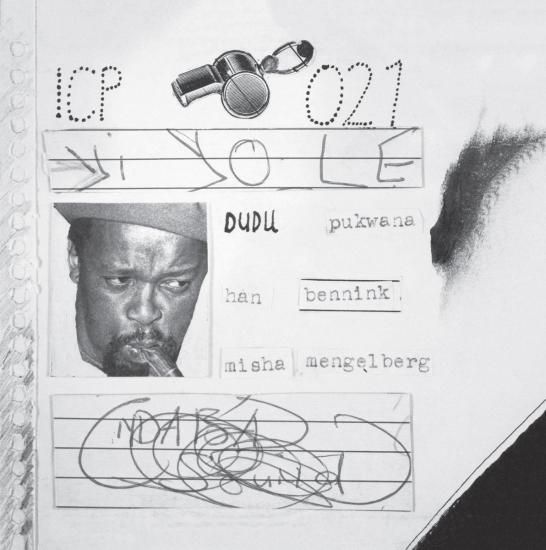 ICP 021
Yi YOLE
DUDU pukwana
han bennink
misha mengelberg
NDABA
Sound